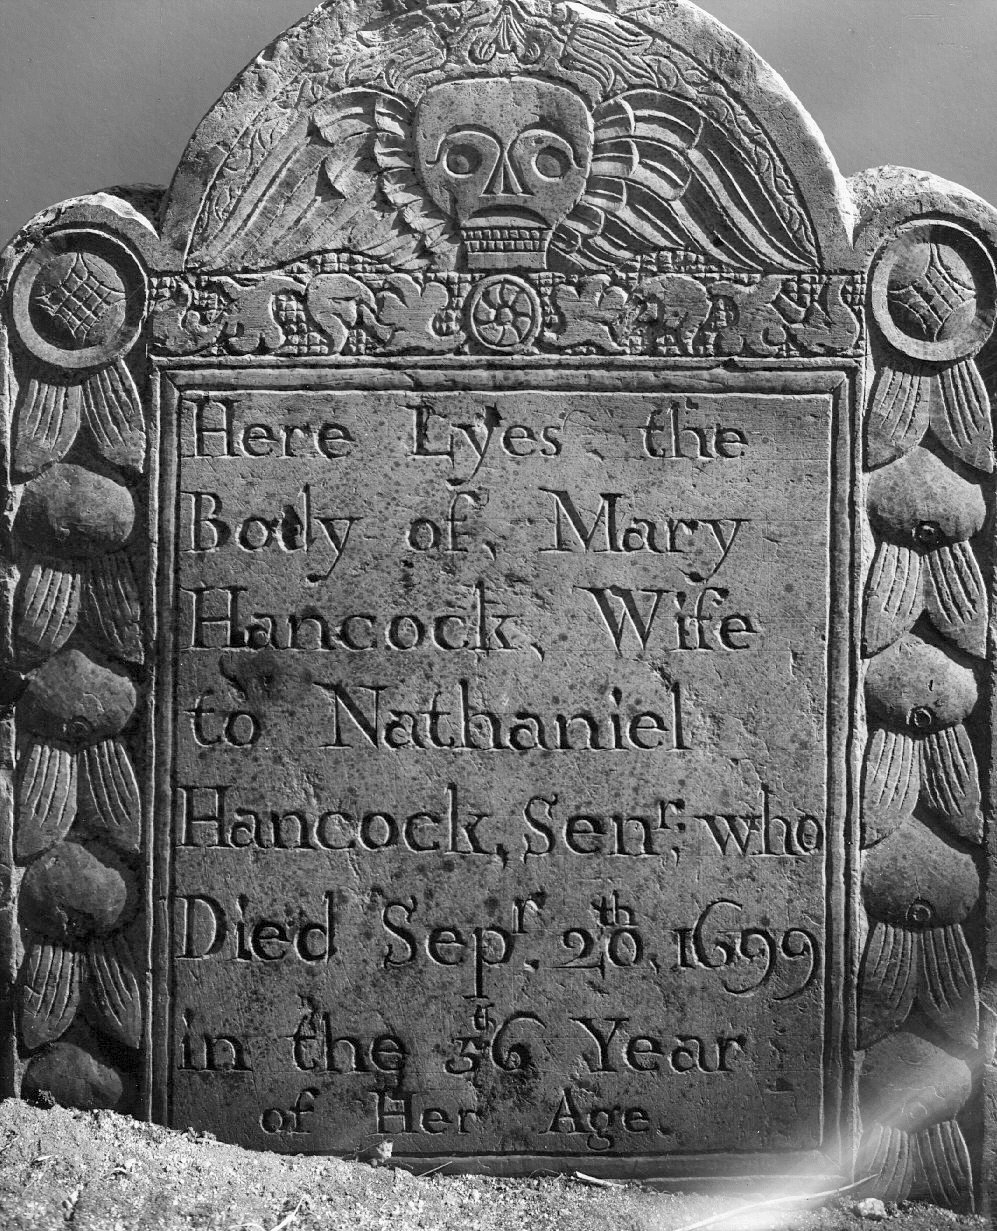 Here Lyes the
Body of, Mary
Hancock, Wife
to Nathaniel
Hancock, Senr; who
Died Sepr. 20th, 1699
in the 56th Year
of Her Age.